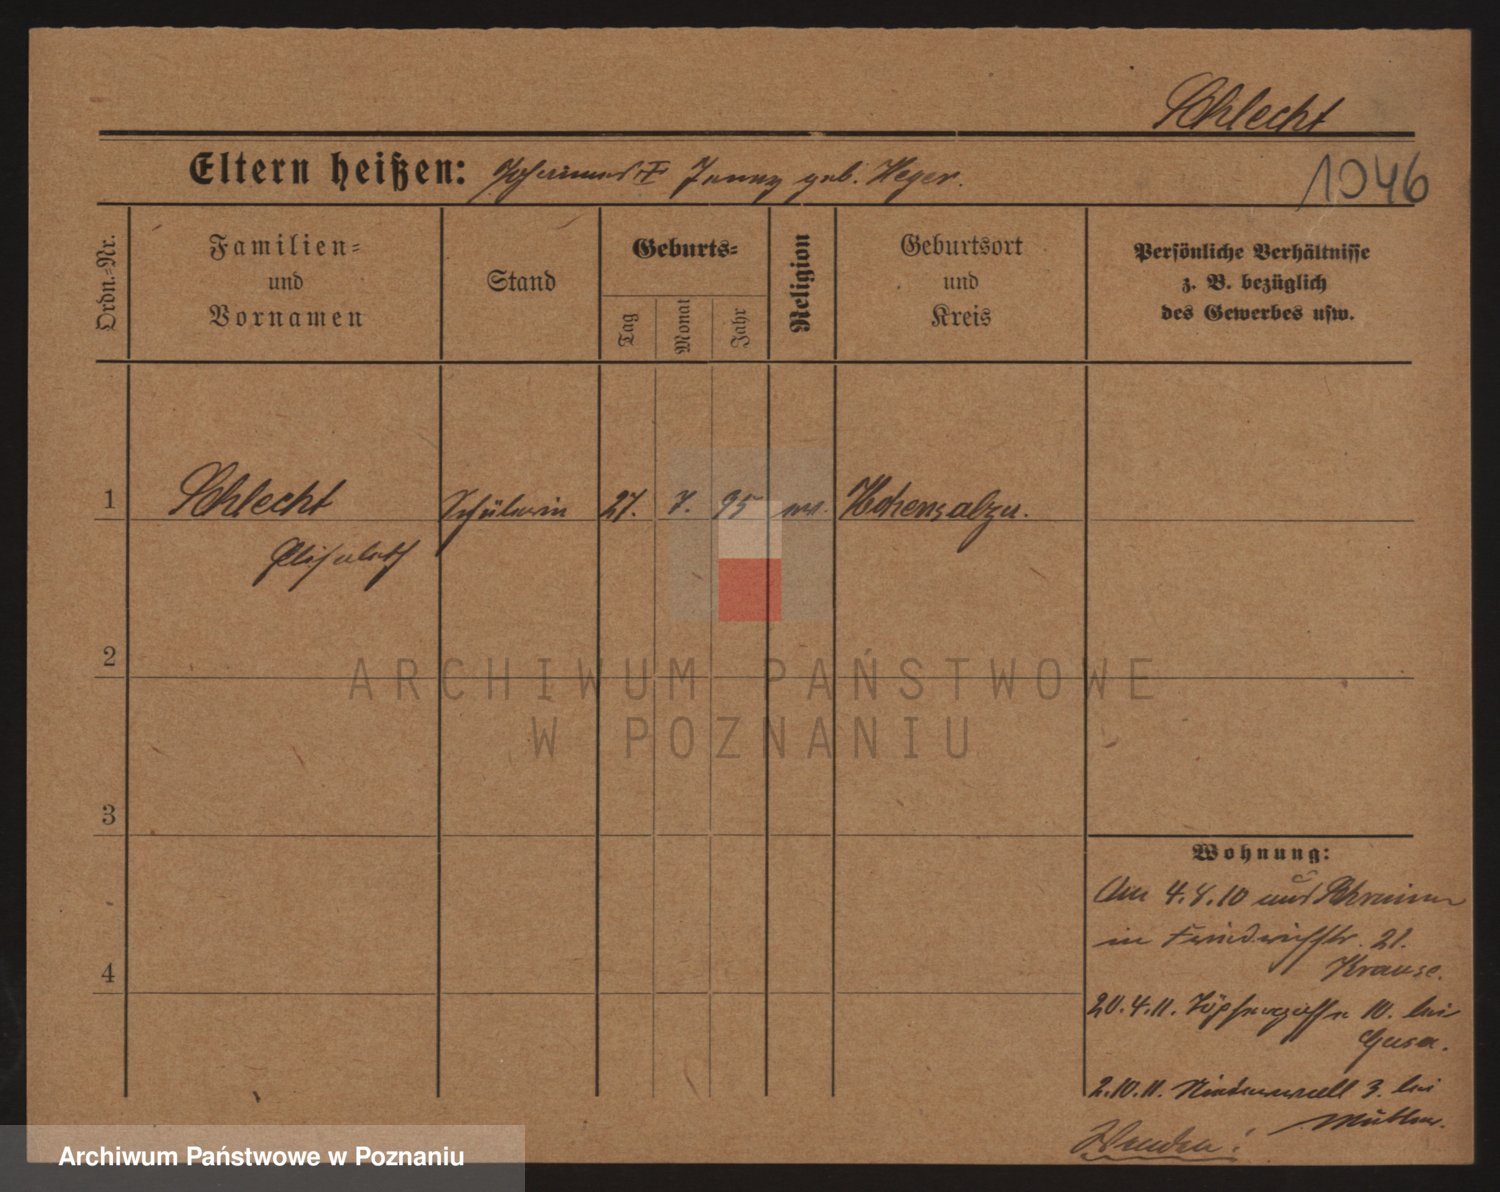 Schlecht
Eltern heißen: Johannes u. Jenny geb. Heyer.
1046
Ordn.-Nr.
Familien-
und
Vornamen
Stand
Geburts-
Tag
Monat
Jahr
Religion
Geburtsort
und
Kreis
Persönliche Verhältnisse
z. B. bezüglich
des Gewerbes usw.
1 Schlecht Schülerin 27. 7. 95 ev. Hohensalza.
Elisabeth
2
3
4
ARCHIWUM PAŃSTWOWE
W POZNANIU
Wohnung:
Am 4.8.10 aus
in Friedrichstr. 21.
Krause.
20.4.11. Töpfergasse 10. bei
2.10.11. Niederwall 3. bei
Wenden!
Archiwum Państwowe w Poznaniu